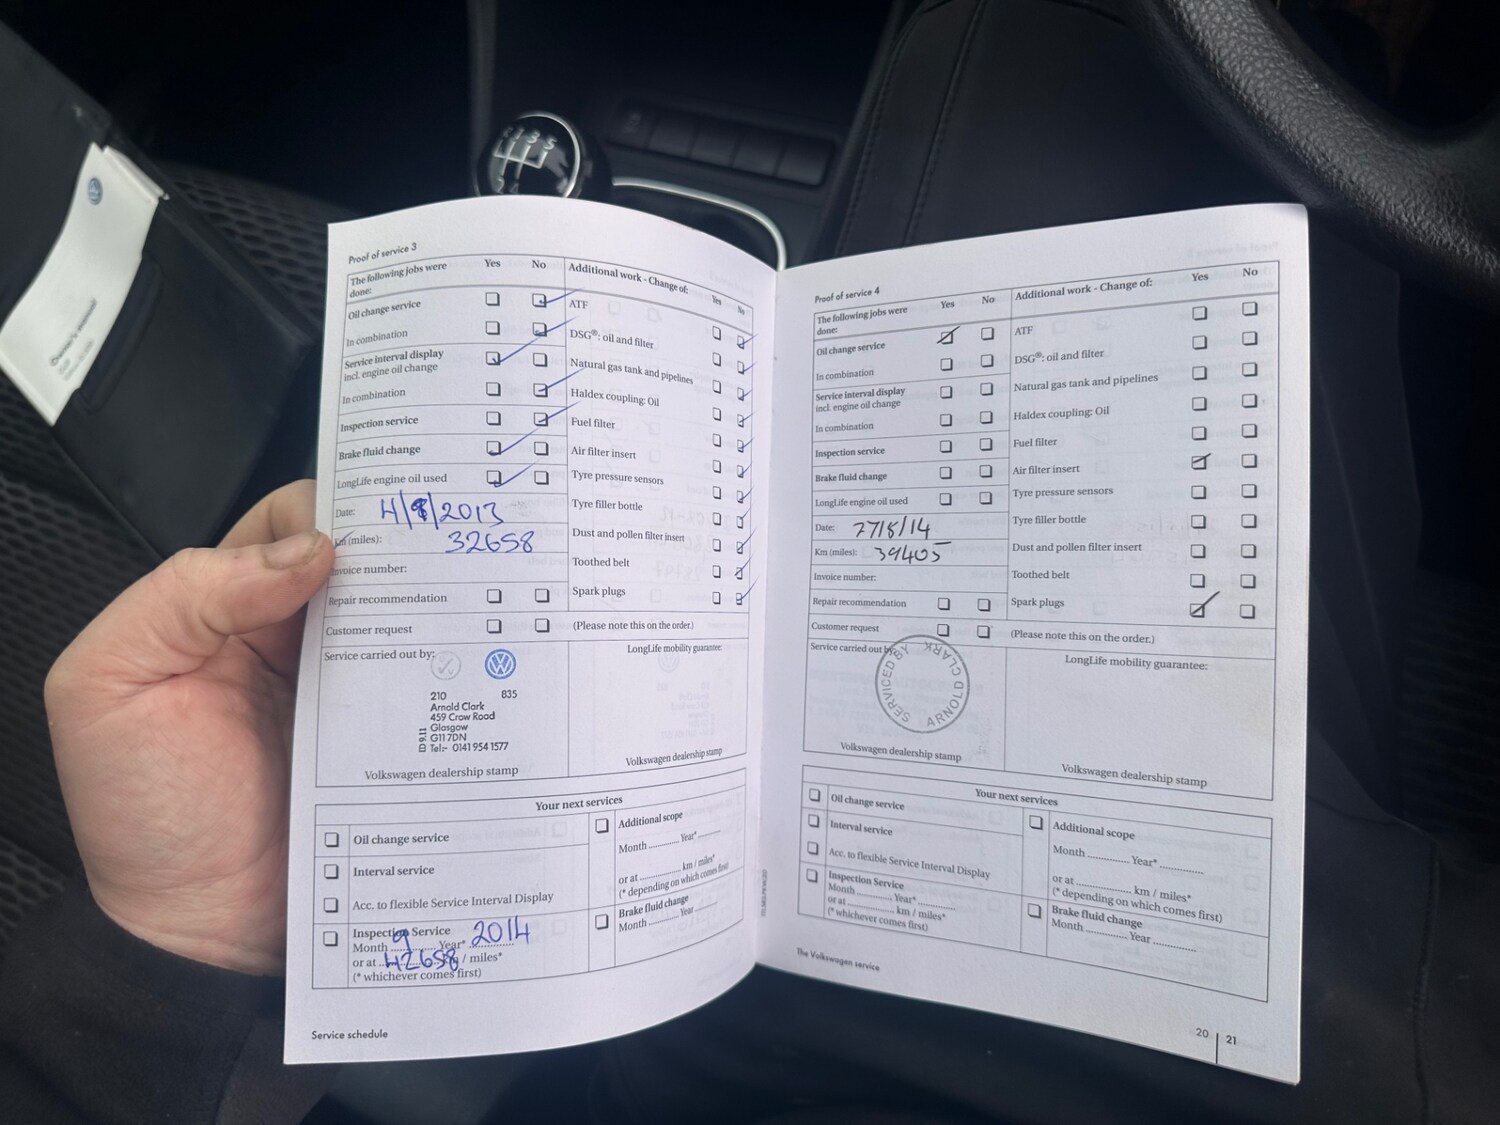 1 3 5
Proof of service 3
The following jobs were done: Yes No
Additional work - Change of: Yes No
Oil change service
In combination
Service interval display
incl. engine oil change
In combination
Inspection service
Brake fluid change
LongLife engine oil used
Date:
Km (miles): 32658
Invoice number:
Repair recommendation
Customer request
ATF
DSG®: oil and filter
Natural gas tank and pipelines
Haldex coupling: Oil
Fuel filter
Air filter insert
Tyre pressure sensors
Tyre filler bottle
Dust and pollen filter insert
Toothed belt
Spark plugs
(Please note this on the order.)
Service carried out by:
210 835
Arnold Clark
459 Crow Road
Glasgow
G11 7DN
Tel:- 0141 954 1577
ID 9.11
Volkswagen dealership stamp
LongLife mobility guarantee:
Volkswagen dealership stamp
Your next services
Oil change service
Interval service
Acc. to flexible Service Interval Display
Inspection Service
Month 9 Year* 2014
or at 42658 km / miles*
(* whichever comes first)
Additional scope
Month Year*
or at km / miles*
(* depending on which comes first)
Brake fluid change
Month Year
Service schedule
Proof of service 4
The following jobs were done: Yes No
Additional work - Change of: Yes No
Oil change service
In combination
Service interval display
incl. engine oil change
In combination
Inspection service
Brake fluid change
LongLife engine oil used
Date: 27/8/14
Km (miles): 39405
Invoice number:
Repair recommendation
Customer request
ATF
DSG®: oil and filter
Natural gas tank and pipelines
Haldex coupling: Oil
Fuel filter
Air filter insert
Tyre pressure sensors
Tyre filler bottle
Dust and pollen filter insert
Toothed belt
Spark plugs
(Please note this on the order.)
Service carried out by:
SERVICED BY ARNOLD CLARK
Volkswagen dealership stamp
LongLife mobility guarantee:
Volkswagen dealership stamp
Your next services
Oil change service
Interval service
Acc. to flexible Service Interval Display
Inspection Service
Month Year*
or at km / miles*
(* whichever comes first)
Additional scope
Month Year*
or at km / miles*
(* depending on which comes first)
Brake fluid change
Month Year
The Volkswagen service
20 21